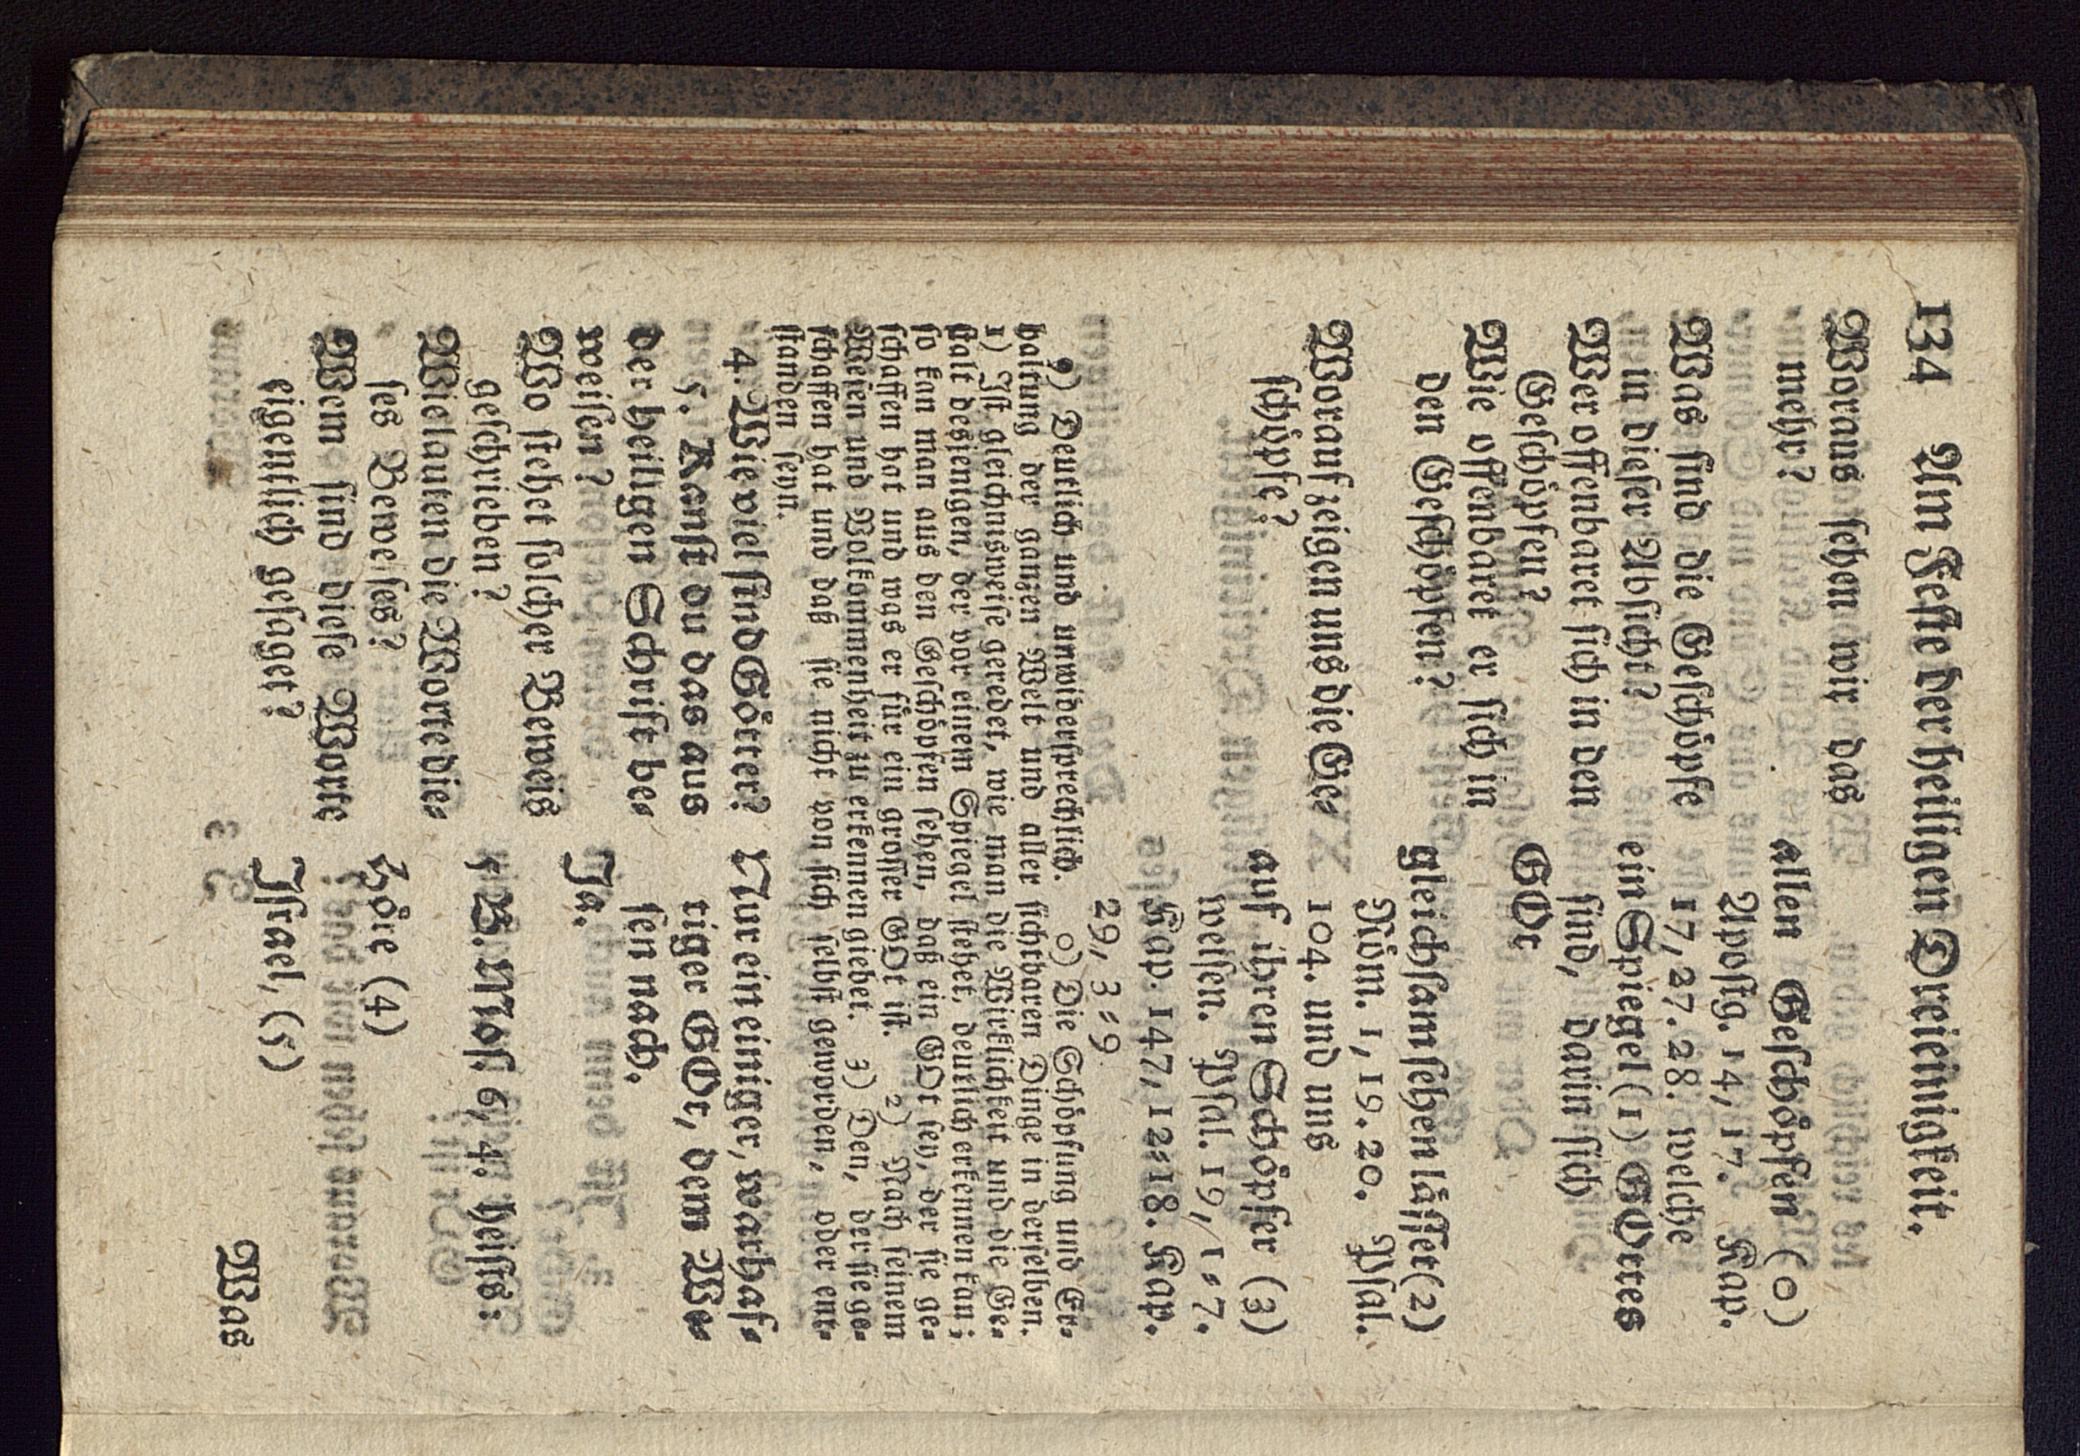 134 Am Feste der heiligen Dreieinigkeit.
Woraus sehen wir das
mehr?
allen Geschöpfen (0)
Apostg. 14, 17. Kap.
Was sind die Geschöpfe
in dieser Absicht?
17, 27. 28. welche
ein Spiegel (1) GOttes
Wer offenbaret sich in den
Geschöpfen?
sind, darin sich
GOt
Wie offenbaret er sich in
den Geschöpfen?
gleichsam sehen lässet (2)
Röm. 1, 19. 20. Psal.
Worauf zeigen uns die Ge⸗
schöpfe?
104. und uns
auf ihren Schöpfer (3)
weisen. Psal. 19, 1⸗7.
Kap. 147, 12⸗18. Kap.
29, 3⸗9.
9) Deutlich und unwidersprechlich. 0) Die Schöpfung und Er⸗
haltung der ganzen Welt und aller sichtbaren Dinge in derselben.
1) Ist gleichnisweise geredet, wie man die Wirklichkeit und die Ge⸗
stalt desjenigen, der vor einem Spiegel stehet, deutlich erkennen kan;
so kan man aus den Geschöpfen sehen, daß ein GOt sey, der sie ge⸗
schaffen hat und was er für ein grosser GOt ist. 2) Nach seinem
Wesen und Volkommenheit zu erkennen giebet. 3) Den, der sie ge⸗
schaffen hat und daß sie nicht von sich selbst geworden, oder ent⸗
standen seyn.
4. Wie viel sind Götter?
Nur ein einiger, warhaf⸗
tiger GOt, dem We⸗
sen nach.
5. Kanst du das aus
der heiligen Schrift be⸗
weisen?
Ja.
Wo stehet solcher Beweis
geschrieben?
5 B. Mos. 6, 4. heists:
Wie lauten die Worte die⸗
ses Beweises?
Höre (4)
Wem sind diese Worte
eigentlich gesaget?
Israel, (5)
Was